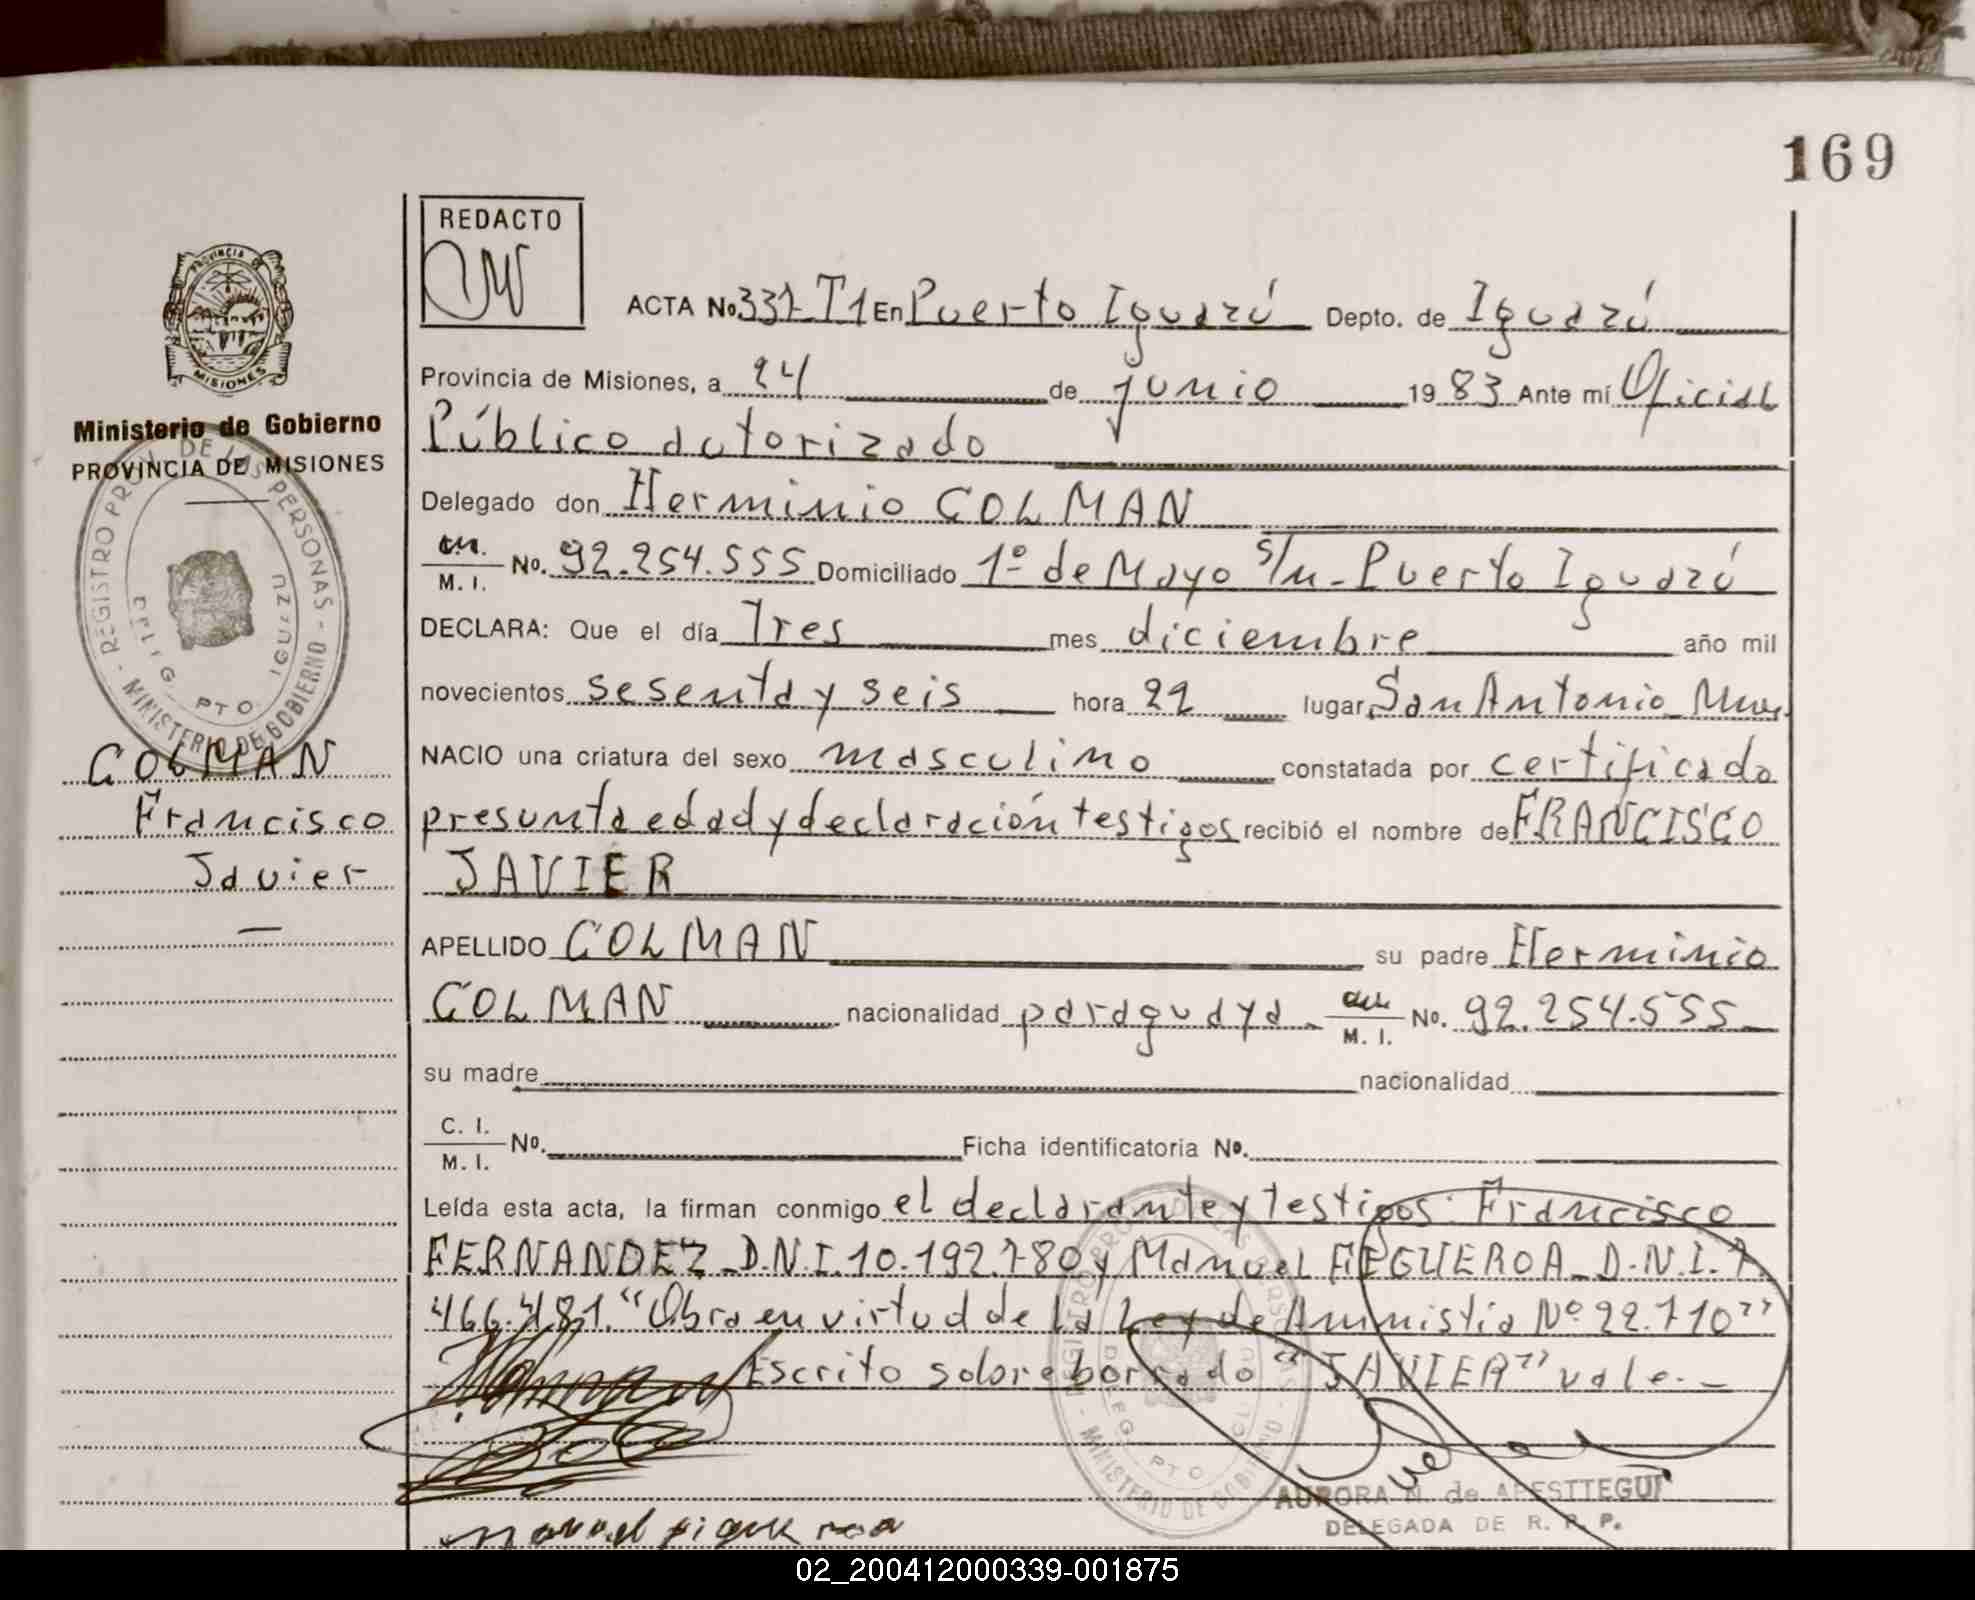 169
REDACTO
ACTA No. 337 T1 En Puerto Iguazú Depto. de Iguazú
Provincia de Misiones, a 24 de junio 1983 Ante mí Oficial
Ministerio de Gobierno
PROVINCIA DE MISIONES
Público autorizado
Delegado don Herminio COLMAN
M. I. No. 92.254.555 Domiciliado 1º de Mayo s/n - Puerto Iguazú
DECLARA: Que el día Tres mes diciembre año mil
novecientos sesenta y seis hora 22 lugar San Antonio
REGISTRO PROV. DE LAS PERSONAS - MINISTERIO DE GOBIERNO -
DELEG. PTO. IGUAZU
COLMAN
Francisco
Javier
NACIO una criatura del sexo masculino constatada por certificado
presunta edad y declaración testigos recibió el nombre de FRANCISCO
JAVIER
APELLIDO COLMAN su padre Herminio
COLMAN nacionalidad paraguaya - M. I. No. 92.254.555
su madre nacionalidad
C. I.
M. I. No. Ficha identificatoria No.
Leída esta acta, la firman conmigo el declarante y testigos: Francisco
FERNANDEZ - D.N.I. 10.192.780 y Manuel FIGUEROA - D.N.I. 7.
466.481. "Obra en virtud de la Ley de Amnistía Nº 22.710"
Escrito sobre borrado "JAVIER" vale. -
AURORA N. de APESTTEGUI
DELEGADA DE R. P. P.
manuel figueroa
02_200412000339-001875